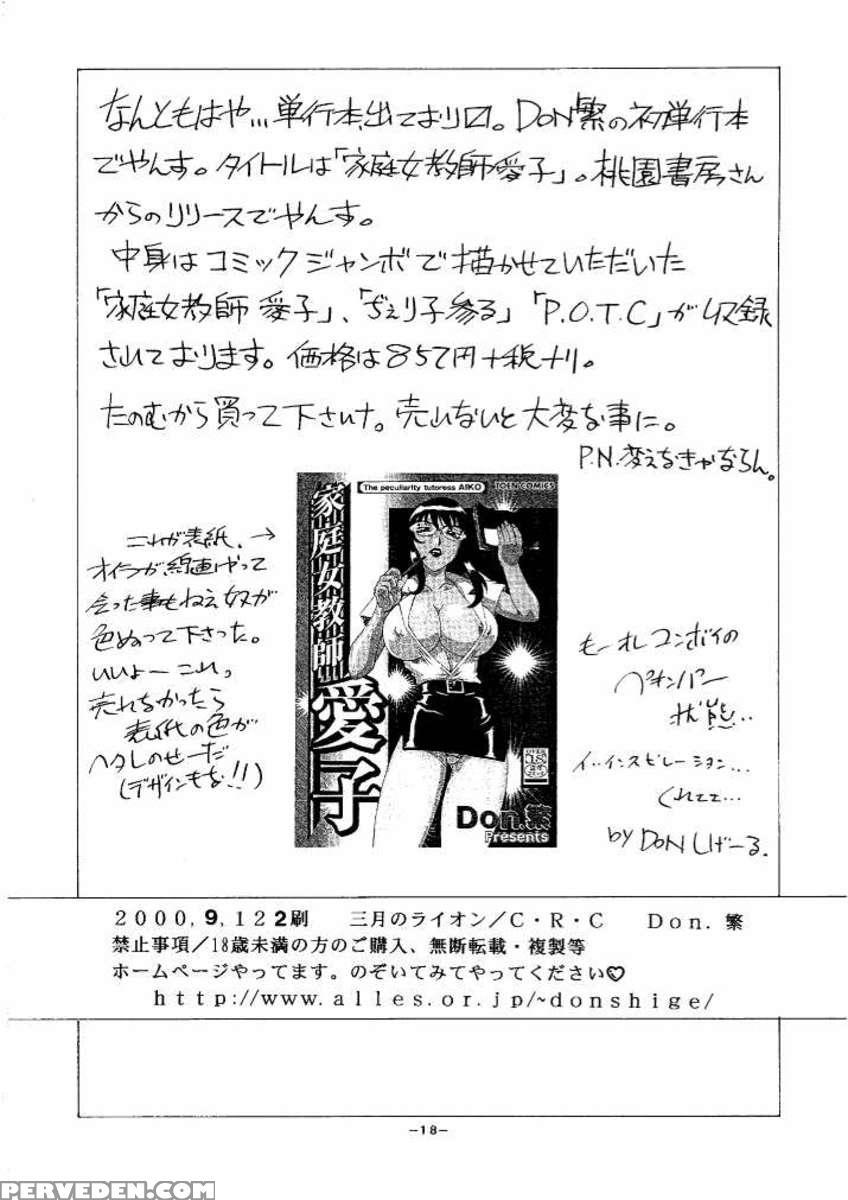 なんともはや…単行本、出ております〼。DON繁の初単行本
でやんす。タイトルは「家庭女教師愛子」。桃園書房さん
からのリリースでやんす。
中身はコミックジャンボで描かせていただいた
「家庭女教師 愛子」、「ぢぇり子参る」「P.O.T.C」が収録
されております。価格は857円+税ナリ。
たのむから買って下さいナ。売れないと大変な事に。
P.N.変えなきゃならん。
The peculiarity tutoress AIKO
TOEN COMICS
家庭女教師
愛子
Don.繁
Presents
これが表紙。→
オイラが線画やって
会った事もねえ奴が
色ぬって下さった。
いいよーこれっ
売れなかったら
表紙の色が
ヘタレのせーだ
(デザインもな!!)
もーオレコンボイの
ペキンパー
状態…
イ…インスピレーション…
くれてェ…
by DON しげーる.
2000,9,12 2刷 三月のライオン/C・R・C Don.繁
禁止事項/18歳未満の方のご購入、無断転載・複製等
ホームページやってます。のぞいてみてやってください♡
http://www.alles.or.jp/~donshige/
-18-
PERVEDEN.COM